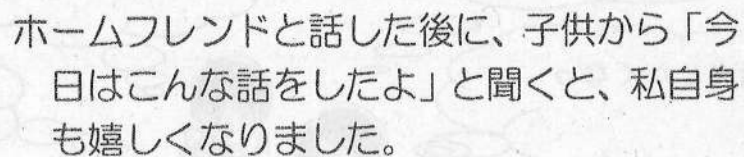 ホームフレンドと話した後に、子供から「今
日はこんな話をしたよ」と聞くと、私自身
も嬉しくなりました。